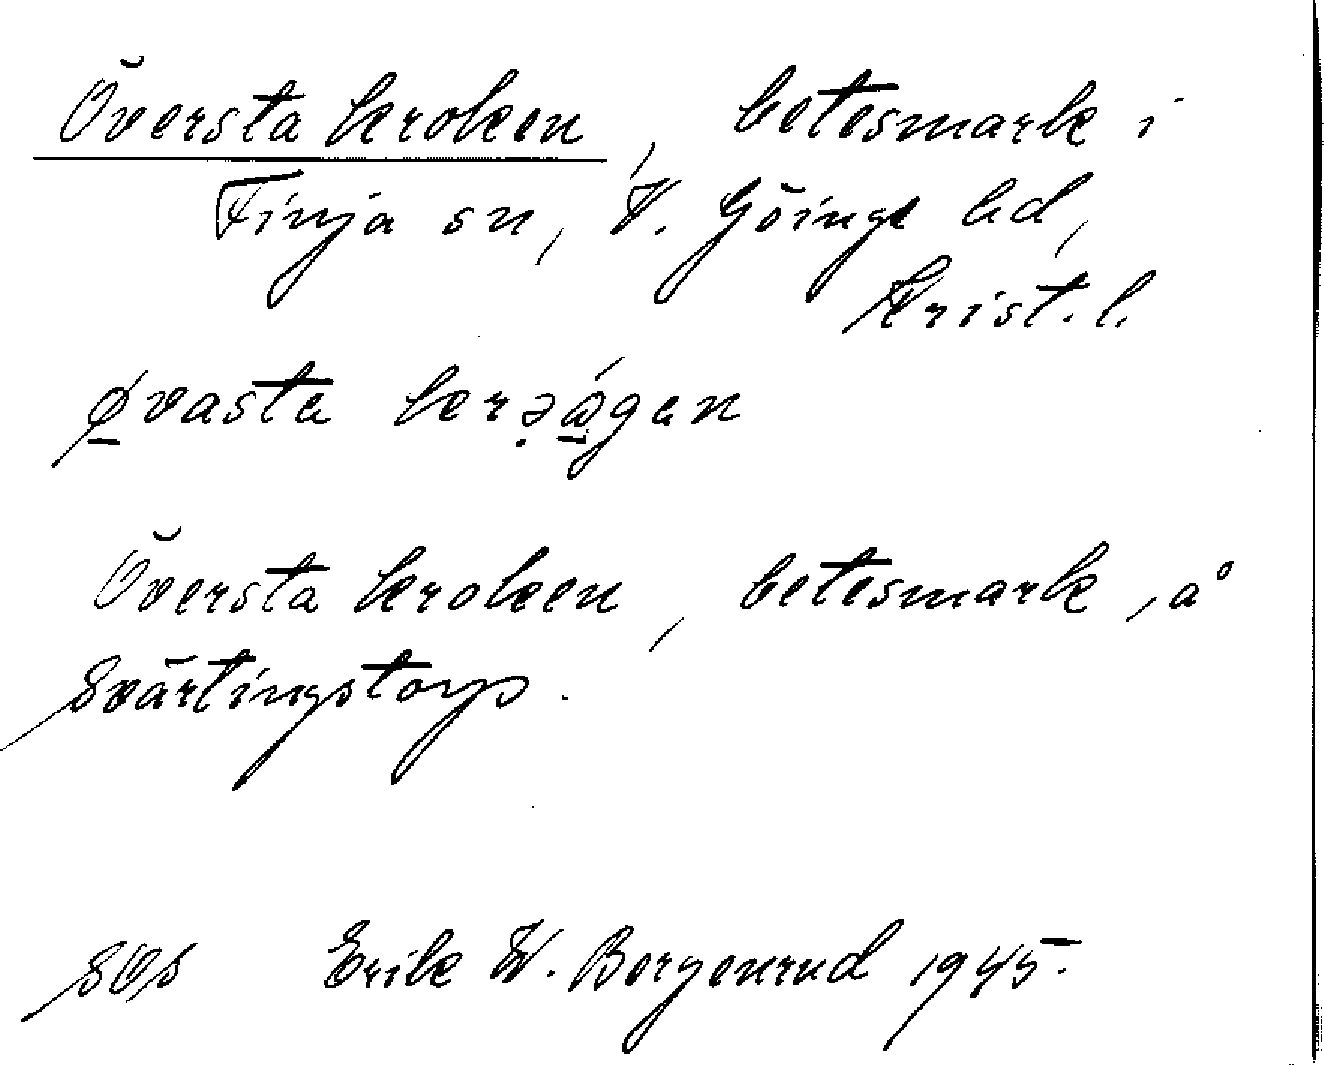 Översta kroken, betesmark i
Finja sn, V. Göinge hd,
Krist. l.
øvasta
Översta kroken, betesmark, å
Svärtingstorp.
Erik W. Bergenrud 1945.